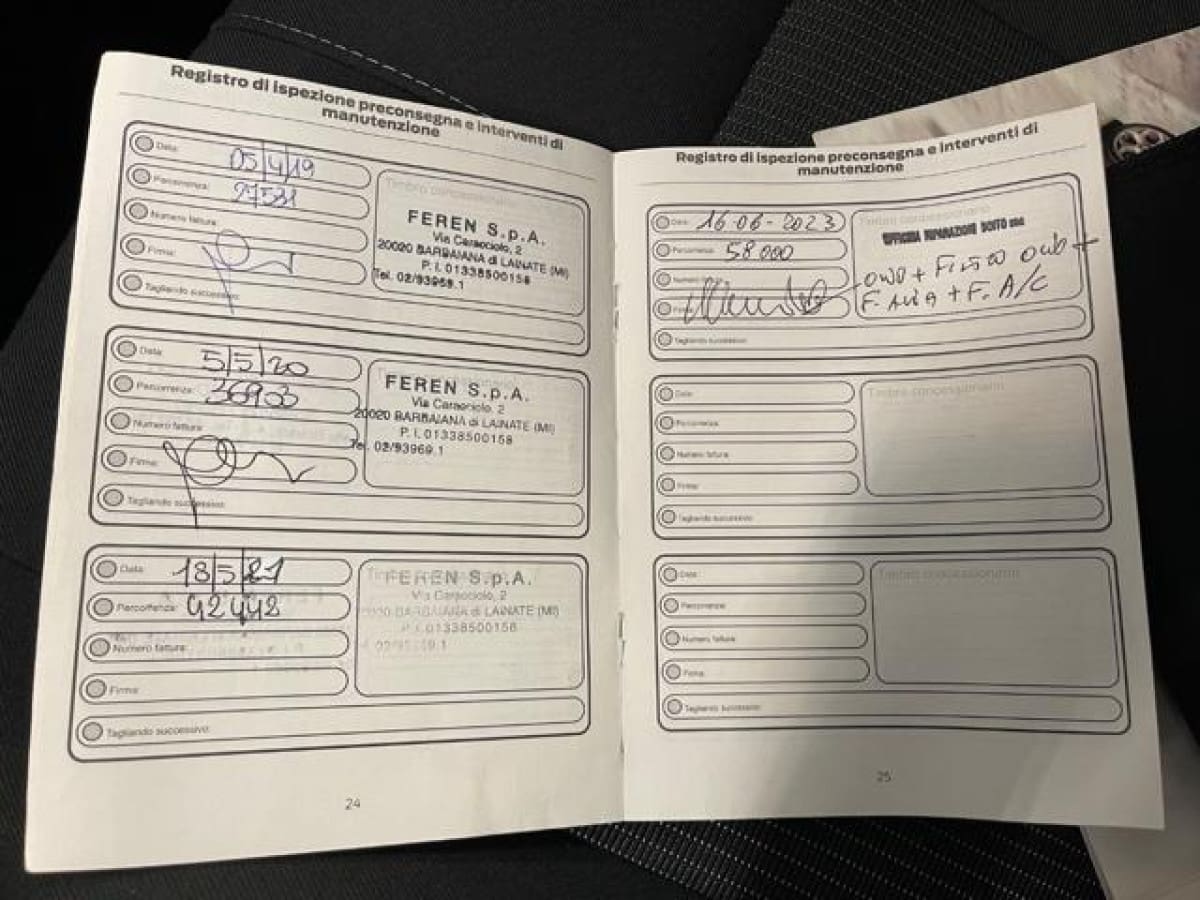 Registro di ispezione preconsegna e interventi di
manutenzione
Data: 05/4/19
Percorrenza: 27531
Numero fattura:
Firma:
Tagliando successivo:
Timbro concessionario
FEREN S.p.A.
Via Caraociolo, 2
20020 BARBAIANA di LAINATE (MI)
P. I. 01338500158
Tel. 02/93969.1
Data: 5/5/20
Percorrenza: 36903
Numero fattura:
Firma:
Tagliando successivo:
FEREN S.p.A.
Via Caraociolo, 2
20020 BARBAIANA di LAINATE (MI)
P. I. 01338500158
Tel. 02/93969.1
Data: 18/5/21
Percorrenza: 42448
Numero fattura:
Firma:
Tagliando successivo:
FEREN S.p.A.
Via Caraociolo, 2
20020 BARBAIANA di LAINATE (MI)
P. I. 01338500158
24
Registro di ispezione preconsegna e interventi di
manutenzione
Data: 16-06-2023
Percorrenza: 58000
Numero fattura:
Firma:
Tagliando successivo:
Timbro concessionario
OFFICINA RIPARAZIONI
+ F. A/C
Data:
Percorrenza:
Numero fattura:
Firma:
Tagliando successivo:
Timbro concessionario
Data:
Percorrenza:
Numero fattura:
Firma:
Tagliando successivo:
Timbro concessionario
25